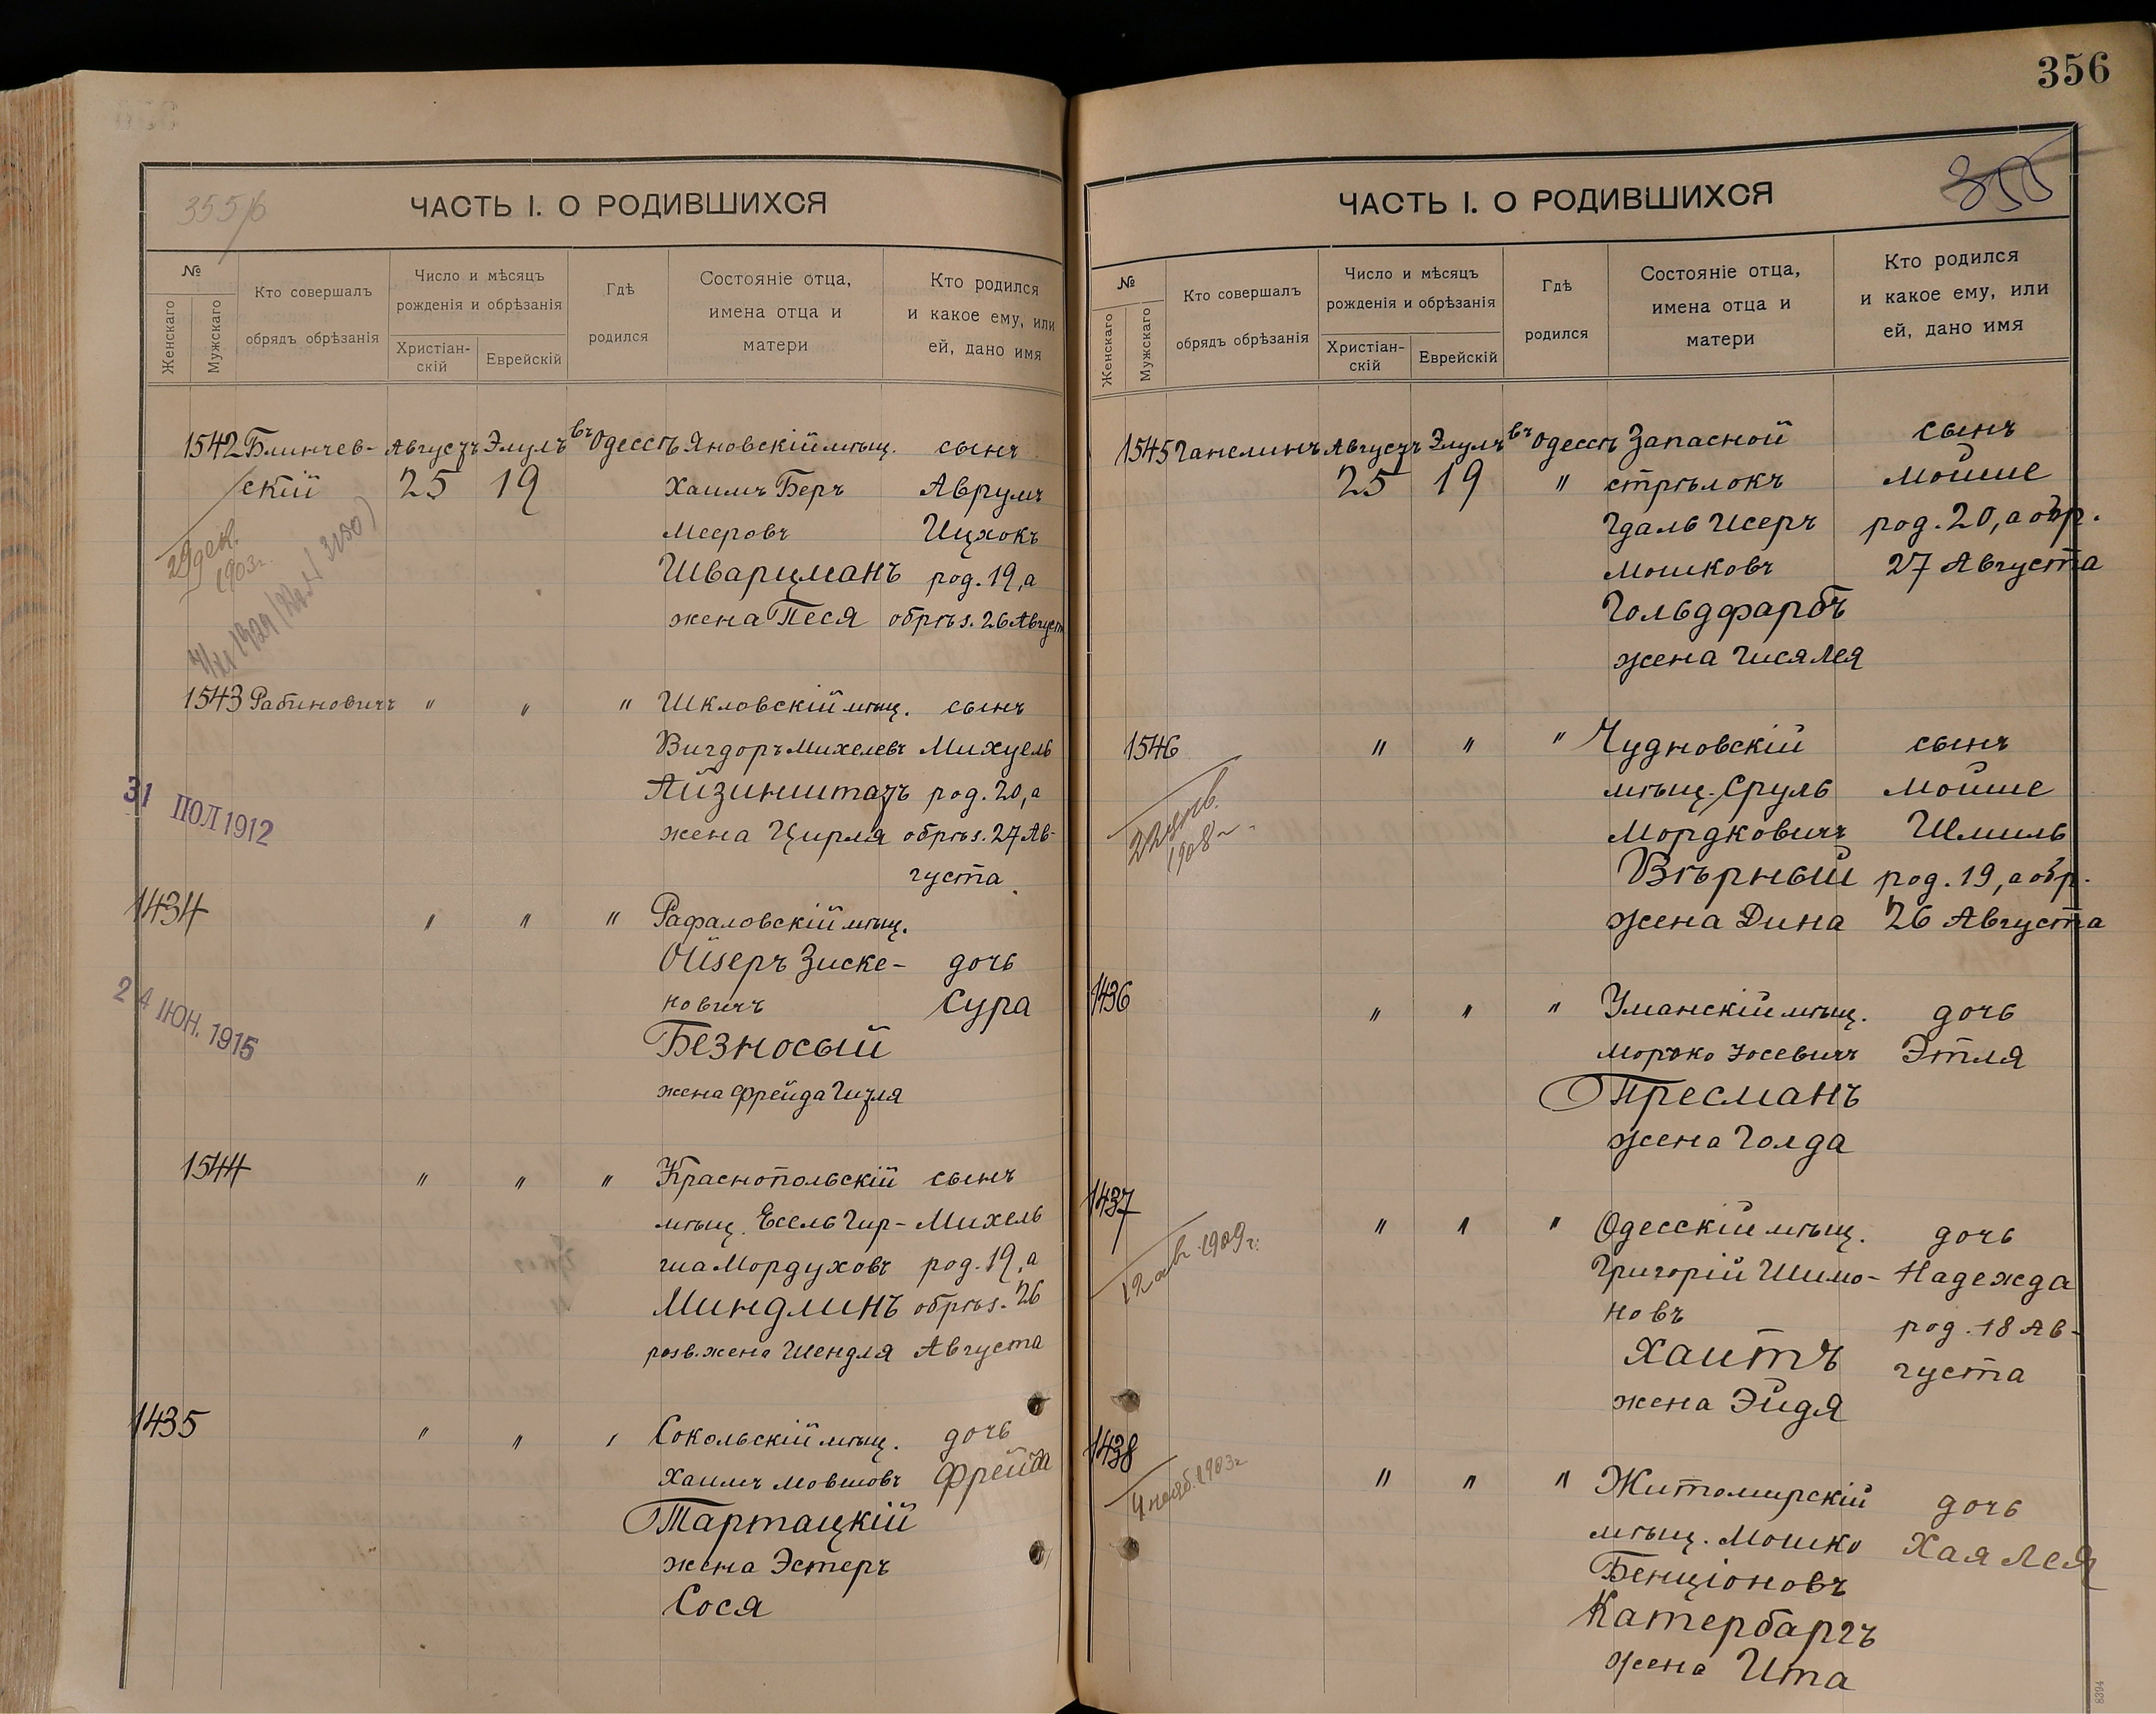 355/6
ЧАСТЬ I. О РОДИВШИХСЯ
№
Женскаго
Мужскаго
Кто совершалъ
обрядъ обрѣзанія
Число и мѣсяцъ
рожденія и обрѣзанія
Христіан-
скій
Еврейскій
Гдѣ
родился
Состояніе отца,
имена отца и
матери
Кто родился
и какое ему, или
ей, дано имя
1542 Блинчев- Августъ Элулъ въ Одессѣ Яновскій мѣщ. сынъ
скій 25 19 Хаимъ Беръ Аврумъ
Мееровъ Ицхокъ
Шварцманъ род. 19, а
жена Песя обрѣз. 26 Август
29 дек.
1903 г.
1543 Рабиновичъ " " " Шкловскій мѣщ. сынъ
Вигдоръ Михелевъ Михуель
Айзинштатъ род. 20, а
жена Цирля обрѣз. 27 Ав-
густа
31 ІЮЛ 1912
1434 " " " Рафаловскій мѣщ.
Ойзеръ Зиске- дочь
новичъ Сура
Безносый
жена Фрейда Гитля
24 ІЮН. 1915
1544 " " " Краснопольскій сынъ
мѣщ. Есель Гир- Михель
ша Мордуховъ род. 19, а
Миндлинъ обрѣз. 26
разв. жена Шендля Августа
1435 " " " Сокольскій мѣщ. дочь
Хаимъ Мовшовъ Фрейда
Тартацкій
жена Эстеръ
Сося
356
355
ЧАСТЬ I. О РОДИВШИХСЯ
№
Женскаго
Мужскаго
Кто совершалъ
обрядъ обрѣзанія
Число и мѣсяцъ
рожденія и обрѣзанія
Христіан-
скій
Еврейскій
Гдѣ
родился
Состояніе отца,
имена отца и
матери
Кто родился
и какое ему, или
ей, дано имя
1545 Ганелинъ Августъ Элулъ въ Одессѣ Запасной сынъ
25 19 " стрѣлокъ Мойше
Гдаль Исеръ род. 20, а обр.
Мошковъ 27 Августа
Гольдфарбъ
жена Гися Лея
1546 " " " Чудновскій сынъ
мѣщ. Сруль Мойше
Мордковичъ Шмиль
Вѣрный род. 19, а обр.
жена Дина 26 Августа
1908 г.
1436 " " " Уманскій мѣщ. дочь
Мошко Іосевичъ Этля
Пресманъ
жена Голда
1437 " " " Одесскій мѣщ. дочь
Григорій Шимо- Надежда
новъ род. 18 Ав-
Хаитъ густа
жена Эйдя
12 авг. 1909 г.
1438 " " " Житомирскій дочь
мѣщ. Мошко Хая Лея
Бенціоновъ
Катербаргъ
жена Ита
4 нояб. 1903 г.
8394